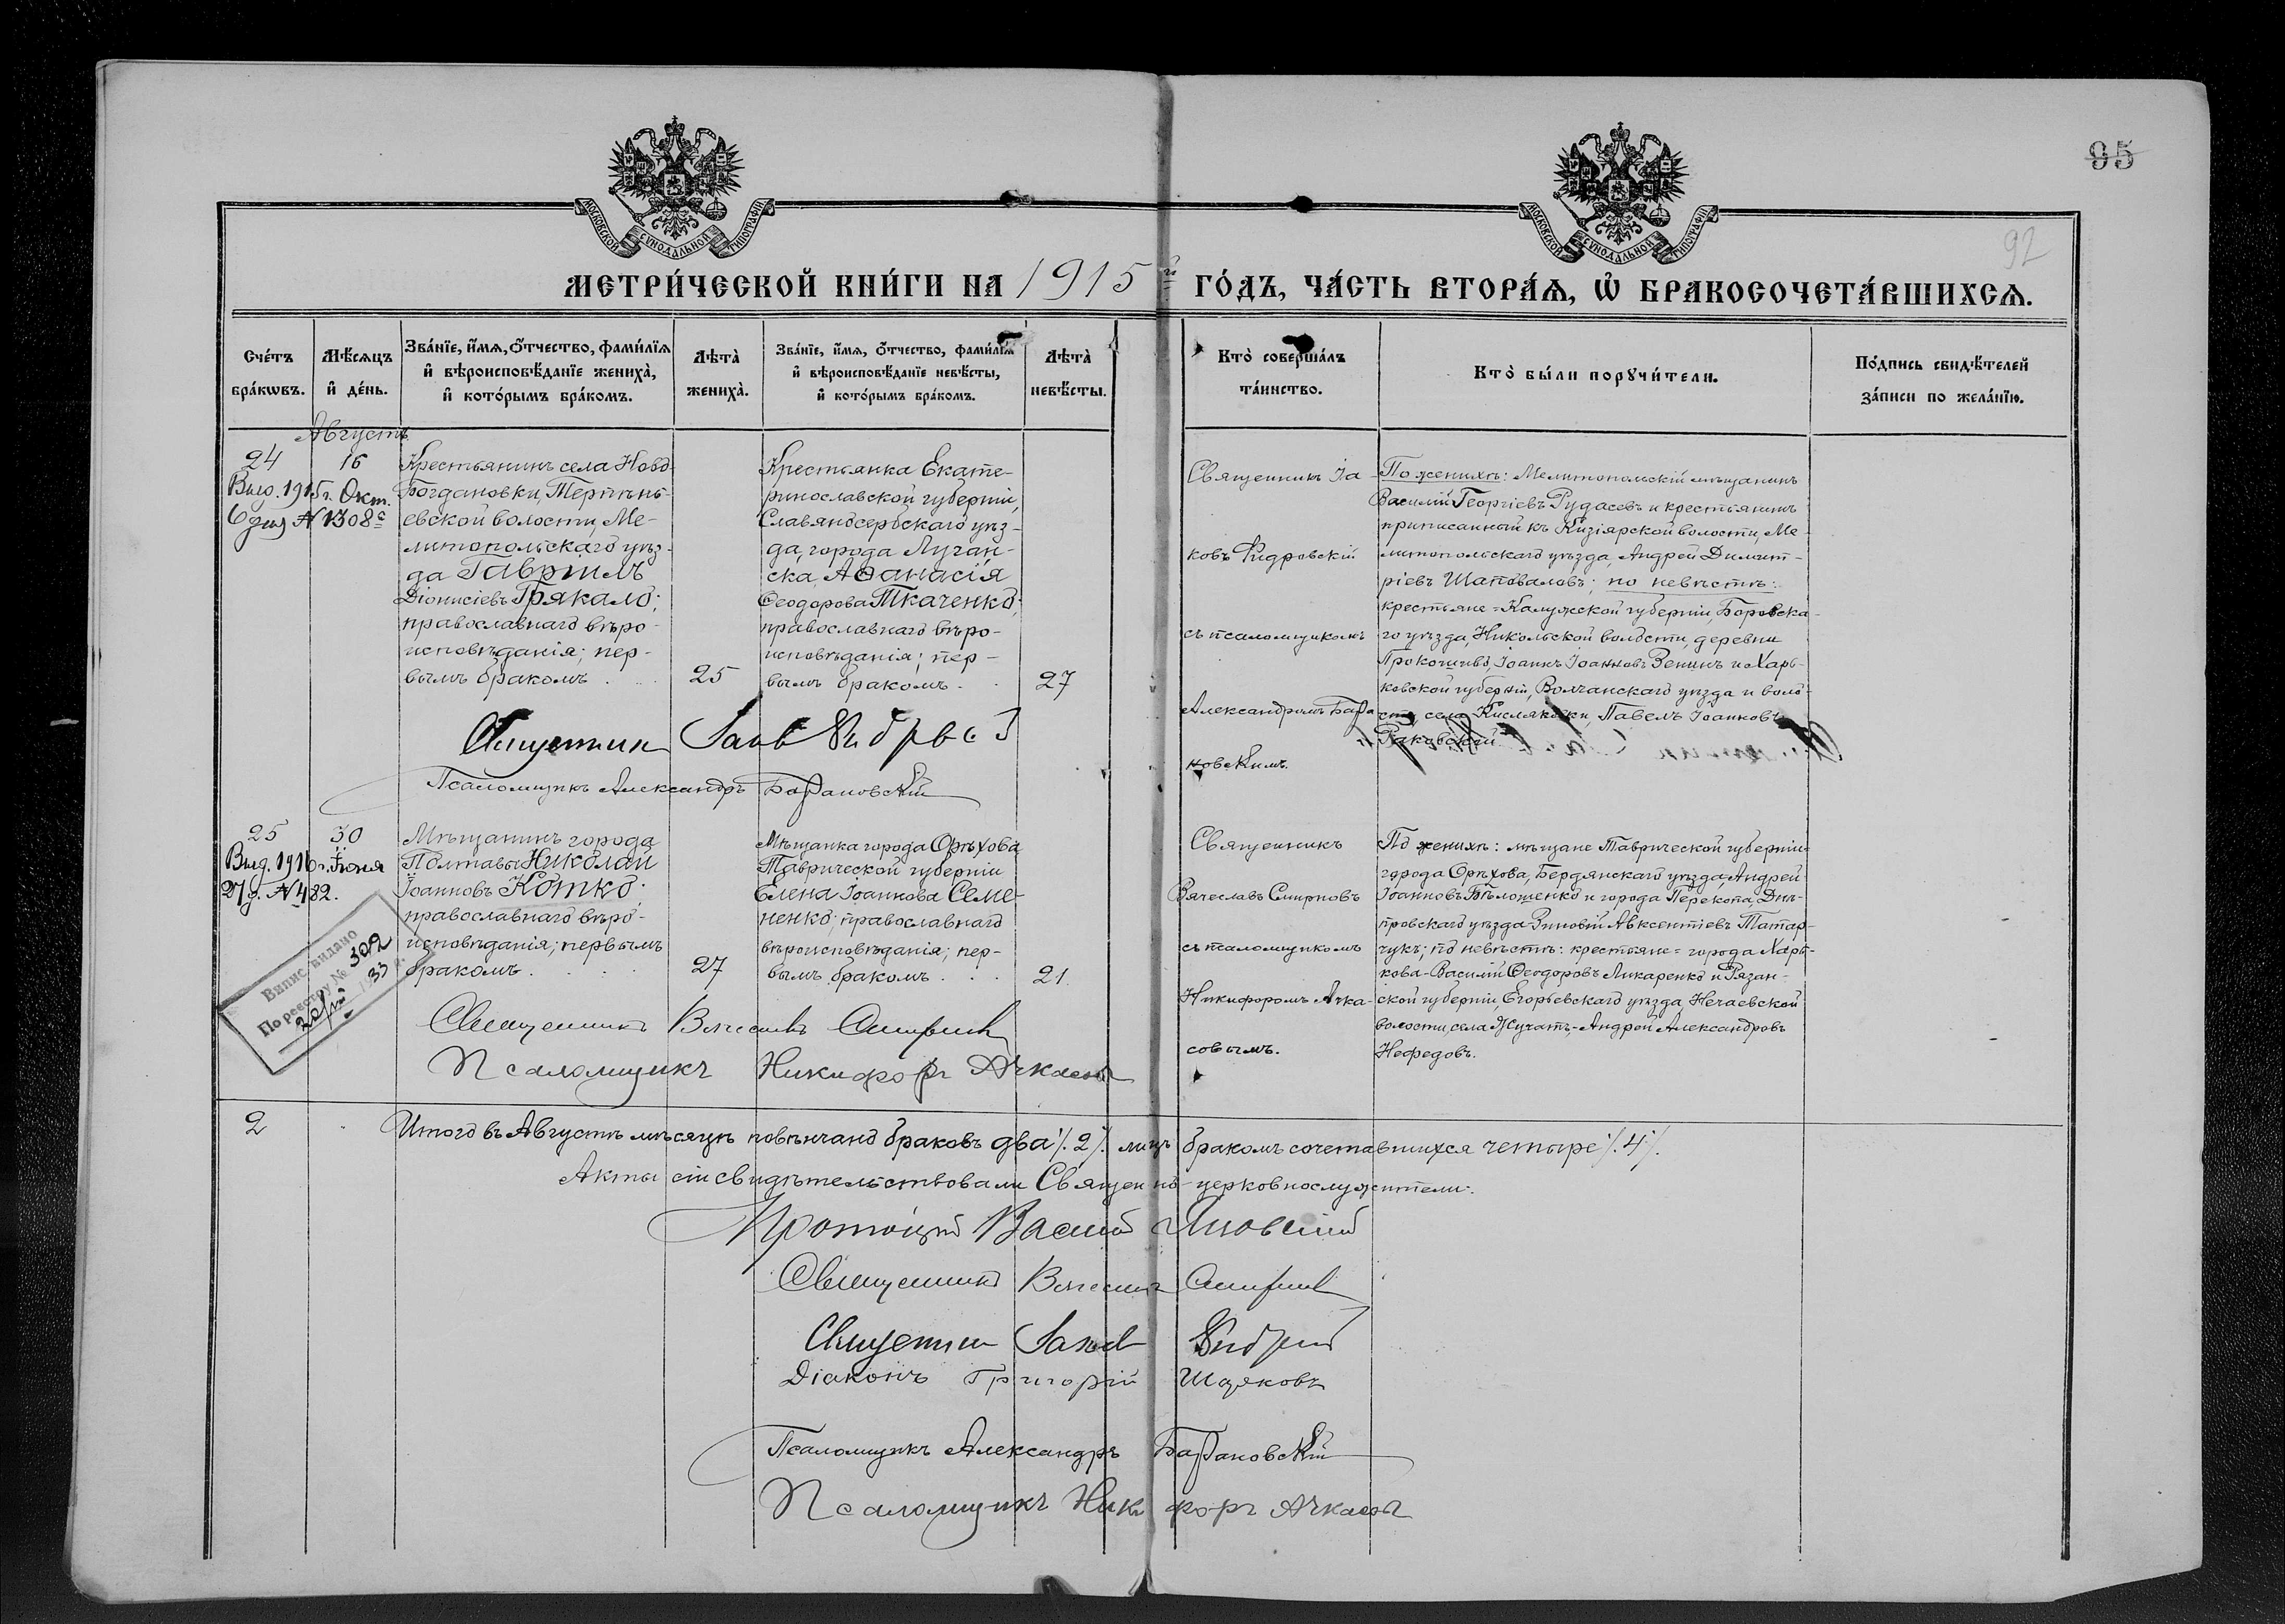 95
92
МОСКОВСКОЙ СУНОДАЛЬНОЙ ТИПОГРАФІИ
МОСКОВСКОЙ СУНОДАЛЬНОЙ ТИПОГРАФІИ
МЕТРИ́ЧЕСКОЙ КНИ́ГИ НА 1915й ГО́ДЪ, ЧА́СТЬ ВТОРА́Ѧ, Ѡ҆ БРАКОСОЧЕТА́ВШИХСѦ.
Сче́тъ бра́кѡвъ.
Мѣ́сяцъ и҆ де́нь.
Зва́нїе, и҆́мя, ѻ҆́тчество, фами́лїя и҆ вѣроисповѣ́данїе жениха̀, и҆ кото́рымъ бра́комъ.
Лѣта̀ жениха̀.
Зва́нїе, и҆́мя, ѻ҆́тчество, фами́лїя и҆ вѣроисповѣ́данїе невѣ́сты, и҆ кото́рымъ бра́комъ.
Лѣта̀ невѣ́сты.
Кто̀ соверша́лъ та́инство.
Кто̀ бы́ли порꙋчи́тели.
По́дпись свидѣ́телей за́писи по жела́нїю.
Августъ
24
16
Выд. 1915 г. Окт.
6 дня № 1308
Крестьянинъ села Ново-
Богдановки, Терпѣнь-
евской волости, Ме-
литопольскаго уѣз-
да Гавріилъ
Діонисіевъ Грякало;
православнаго вѣро-
исповѣданія; пер-
вымъ бракомъ.
25
Крестьянка Екате-
ринославской губерніи,
Славяносербскаго уѣз-
да, города Луган-
ска Аѳанасія
Ѳеодорова Ткаченко;
православнаго вѣро-
исповѣданія; пер-
вымъ бракомъ.
27
Священникъ Іа-
ковъ
съ псаломщикомъ
Александромъ Бара-
новскимъ.
По женихѣ: Мелитопольскій мѣщанинъ
Василій Георгіевъ Рудасевъ и крестьянинъ
приписанный къ Кизіярской волости, Ме-
литопольскаго уѣзда, Андрей Димит-
ріевъ Шаповаловъ; по невѣстѣ:
крестьяне = Калужской губерніи, Боровска-
го уѣзда, Никольской волости, деревни
Прокошиво, Іоаннъ Іоанновъ Зенинъ и Харь-
ковской губерніи, Волчанскаго уѣзда и воло-
сти, села Кисляковки, Павелъ Іоанновъ
Раковскій.
Священник Іаков
Псаломщикъ Александръ Барановскій
25
30
Выд. 1916 г. Іюня
27 д. № 482.
Мѣщанинъ города
Полтавы Николай
Іоанновъ Котко;
православнаго вѣро-
исповѣданія; первымъ
бракомъ.
27
Мѣщанка города Орѣхова
Таврической губерніи
Елена Іоаннова Семе-
ненко; православнаго
вѣроисповѣданія; пер-
вымъ бракомъ.
21.
Священникъ
Вячеславъ Смирновъ
съ псаломщикомъ
Никифоромъ Ачка-
совымъ.
По женихѣ: мѣщане Таврической губерніи=
города Орѣхова, Бердянскаго уѣзда, Андрей
Іоанновъ Бѣлошенко и города Перекопа, Днѣ-
провскаго уѣзда Зиновій Авксентіевъ Татар-
чукъ; по невѣстѣ: крестьяне = города Харь-
кова-Василій ѲеодоровъЛикаренко и Рязан-
ской губерніи, Егорьевскаго уѣзда, Нечаевской
волости, села Жучатъ,-Андрей Александровъ
Нефедовъ.
Випис. видано
По реестру № 302
193 3
Священникъ Вячеславъ Смирновъ
Псаломщикъ Никифоръ Ачкасовъ
2
Итого въ Августѣ мѣсяцѣ повѣнчано браковъ два /.2/. лицъ бракомъ сочетавшихся четыре /.4/.
Акты сіи свидѣтельствовали Священно-церковнослужители:
Протоіерей Василій Яновскій
Священникъ Вячеславъ Смирновъ
Священник Іаков
Діаконъ Григорій
Псаломщикъ Александръ Барановскій
Псаломщикъ Никифоръ Ачкасовъ